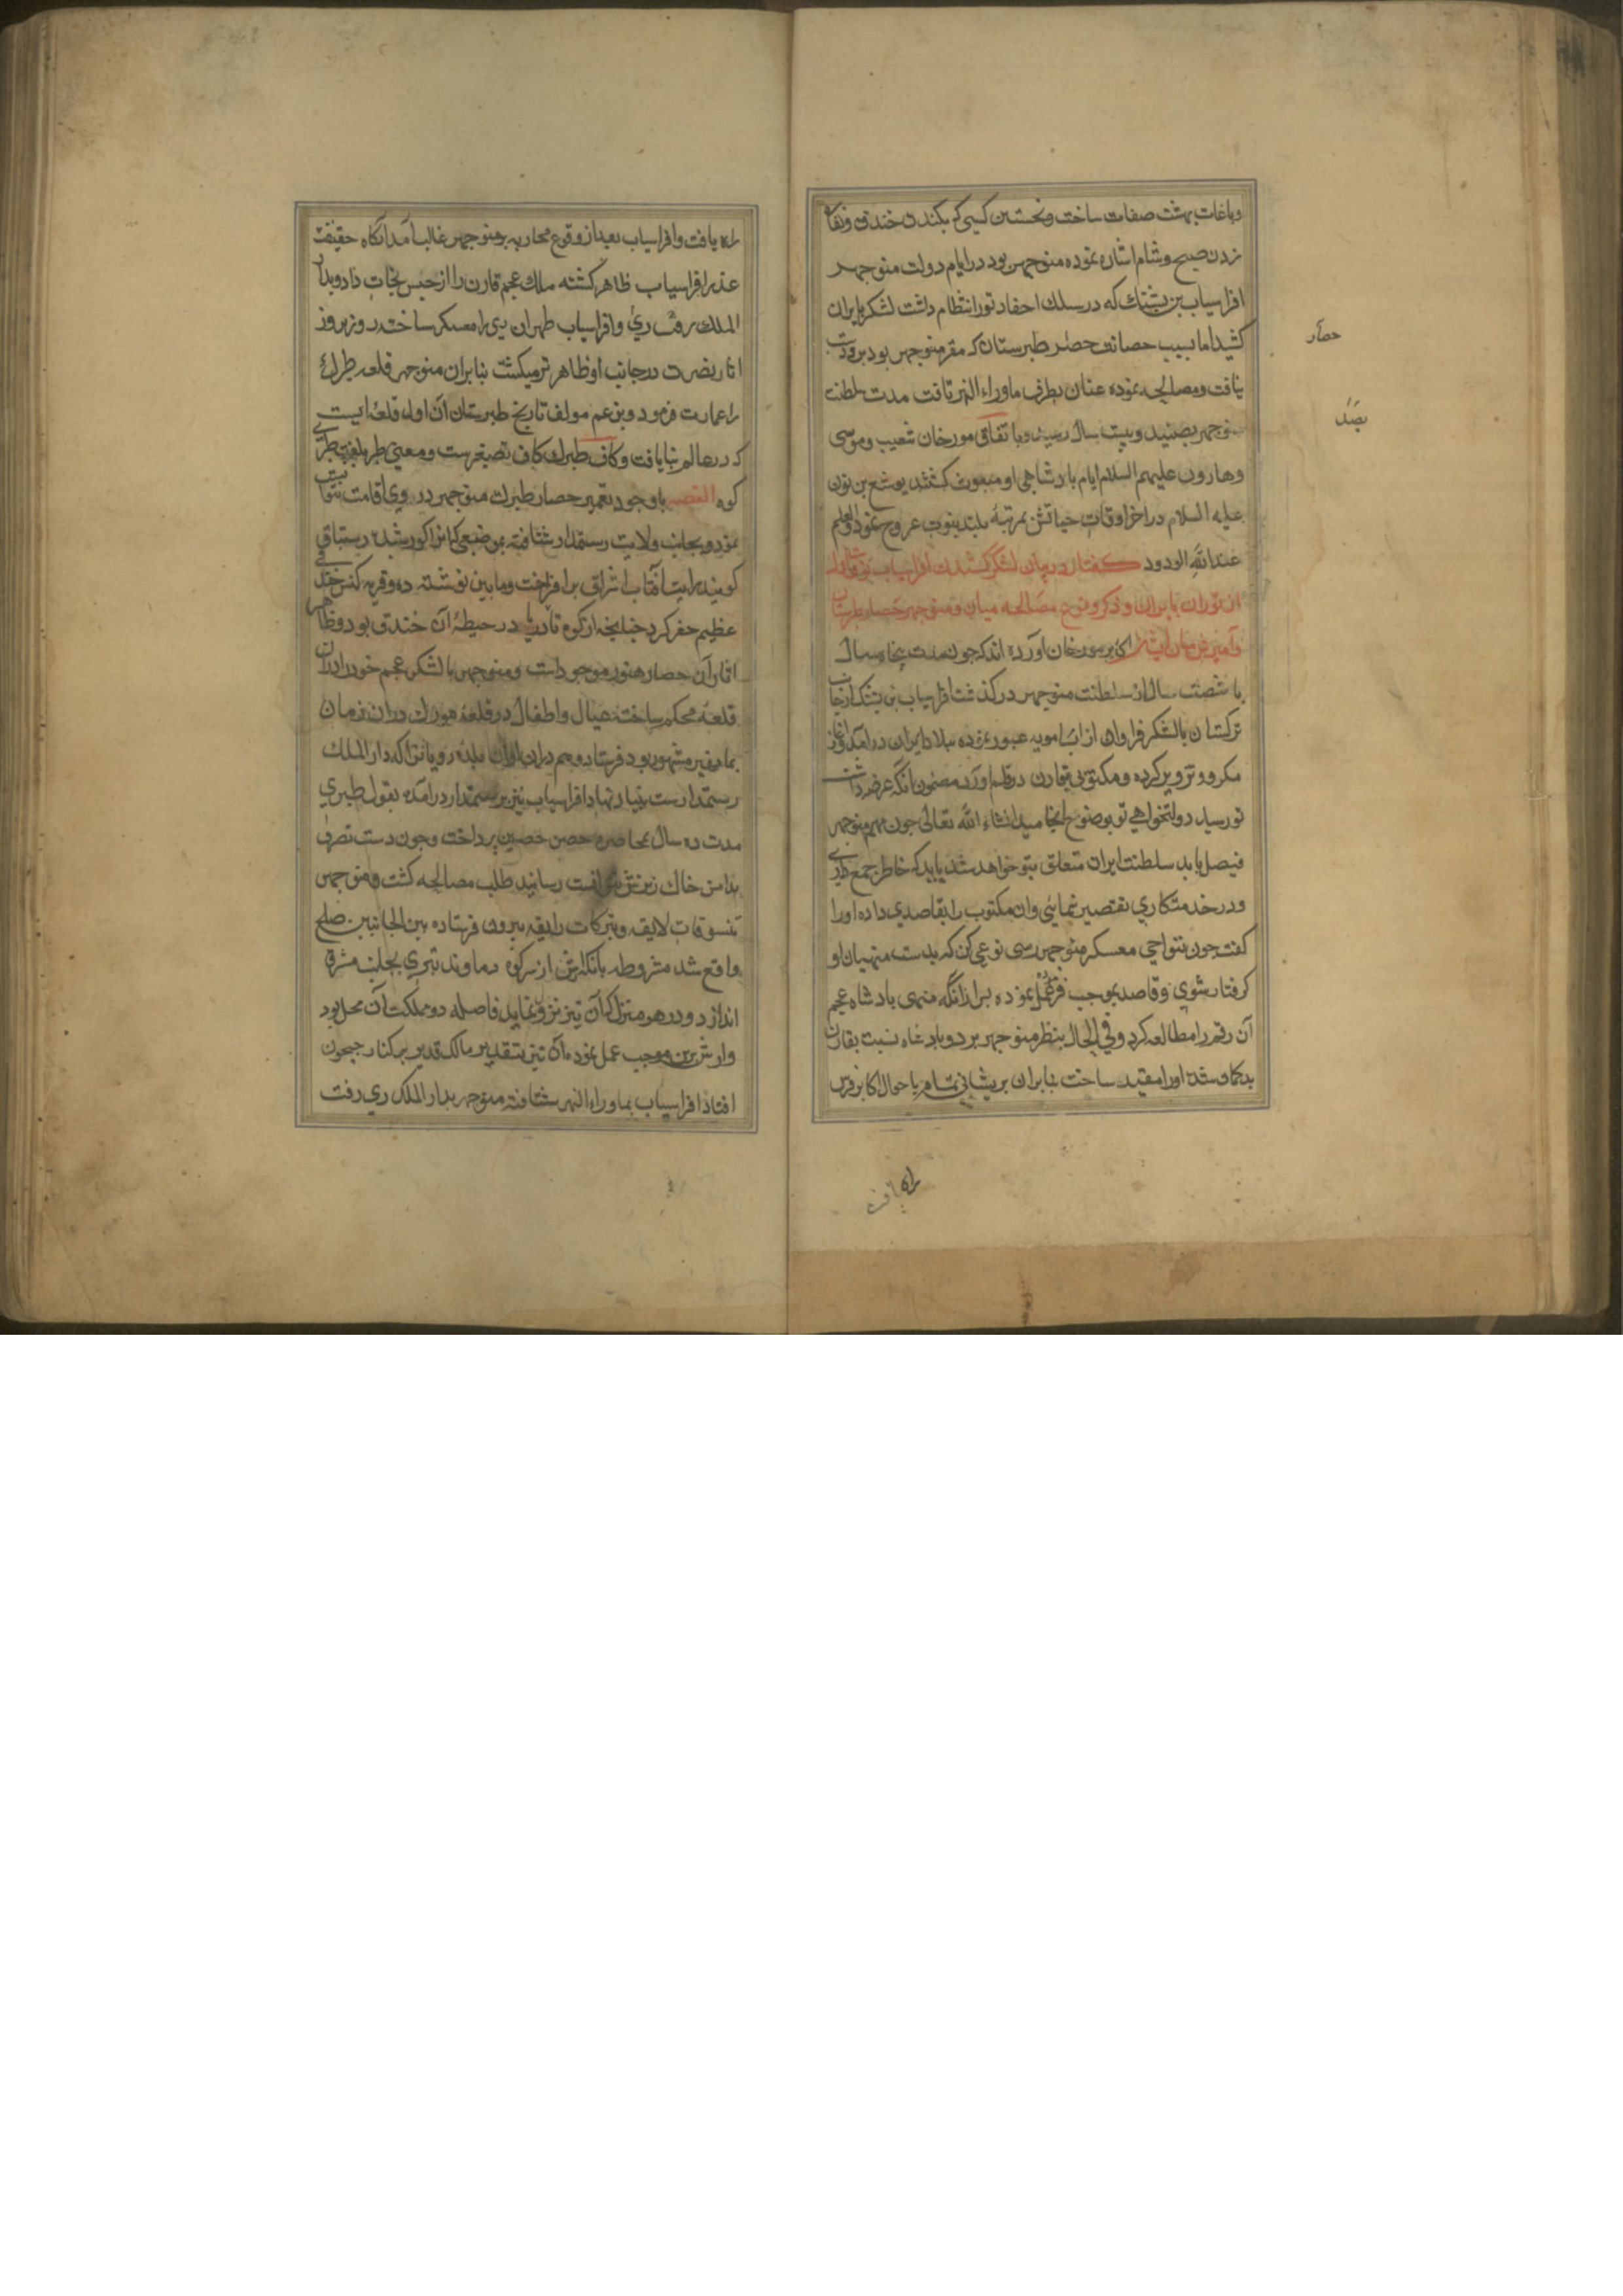 وباغات بهشت صفات ساخت ونخستین کسی که بکندن خندق ونقاره
زدن صبح وشام اشاره نموده منوجهر بود در ایام دولت منوجهر
افراسیاب بن بشنك که در سلك احفاد تور انتظام داشت لشکر بایران
کشید اما بسبب حصانت حصار طبرستان که مقر منوجهر بود برو دست
نیافت ومصالحه نموده عنان بطرف ماوراء النهر تافت مدت سلطنت
منوجهر بصد وبیست سال رسید وباتفاق مورخان شعیب وموسی
وهارون علیهم السلام ایام بادشاهی او مبعوث کشتند یوشع بن نون
علیه السلام در اخر اوقات حیاتش بمرتبهٔ بلند نبوت عروج نمود والعلم
عندالله الودود کفتار در بیان لشکر کشیدن افراسیاب
از توران بایران وذکر وقوع مصالحه میان او منوجهر حصار طبرستان
اکابر مورخان آورده اند که جون مدت بنجاه سال
یا شصت سال از سلطنت منوجهر در کذشت افراسیاب بن بشنك از جانب
ترکستان بالشکر فراوان از آب امویه عبور نموده ببلاد ایران درآمد وآغاز
مکر وتزویر کرده ومکتوبی بقارن در قلم آورد مضمون آنکه عرضه داشت
تو رسید دولتخواهی تو بوضوح انجامید انشاء الله تعالی جون مهم منوجهر
فیصل یابد سلطنت ایران متعلق بتو خواهد شد باید که خاطر جمع داری
ودر خدمتکاری تقصیر ننمایی وان مکتوب را بقاصدی داده اورا
کفت جون بنواحی معسکر منوجهر رسی نوعی کن که بدست منهیان او
کرفتار شوی وقاصد بموجب فرموده عمل نموده بس از انکه منهی بادشاه عجم
آن رقم را مطالعه کرد وفی الحال بنظر منوجهر برد وبادشاه نسبت بقارن
بدکمان شده اورا مقید ساخت بنابران بریشانی تمام باحوال اکابر فرس
حصار
بصد
راه یافت
راه یافت وافراسیاب بعد از وقوع محاربه بر منوجهر غالب آمد آنکاه حقیقت
عذر افراسیاب ظاهر کشته ملك عجم قارن را از حبس نجات داد وبدار
الملك رفت ری وافراسیاب طهران ری را معسکر ساخت روز بروز
اثار نصرت در جانب او ظاهرتر میکشت بنابران منوجهر قلعه طبرك
را عمارت فرمود وبزعم مولف تاریخ طبرستان آن اول قلعه ایست
که در عالم بنا یافت وکاف طبرك کاف تصغیرست ومعنی طبر بلغت طبری
کوه القصه باوجود تعمیر حصار طبرك منوجهر در ری اقامت نتوانست
نمود وبجانب ولایت رستمدار شتافته بموضعی که انرا کورشید رستاق
کویند رایت آفتاب اشراق برافراخت ومابین نوشته ده وقریه کنس خندقی
عظیم حفر کرد جنانجه از کوه تا دریا در حیطهٔ آن خندق بود وظاهرا
اثار آن حصار هنوز موجودست ومنوجهر بالشکر عجم خود را دران
قلعهٔ محکم ساخته عیال واطفال در قلعهٔ مورك دران زمان
بماهغیر مشهور بود فرستاد وهم دران اوان بلدهٔ رویانرا که دار الملك
رستمدارست بنیاد نهاد افراسیاب نیز برستمدار درآمده بقول طبری
مدت ده سال بمحاصره حصن حصین برداخت وجون دست تصرف
بدامن خاك ریزش نتوانست رسانید طلب مصالحه کشت ومنوجهر
تنسوقات لایقه وتبرکات رایقه بیرون فرستاده بین الجانبین صلح
واقع شد مشروطه بانکه ارش از سر کوه دماوند تیری بجانب مشرق
اندازد ودر هر منزل که آن تیر نزول نماید فاصله دو مملکت آن محل بود
وارش برین موجب عمل نموده آن تیر بتقدیر مالك قدیر بر کنار جیحون
افتاد افراسیاب بماوراء النهر شتافته منوجهر بدار الملك ری رفت